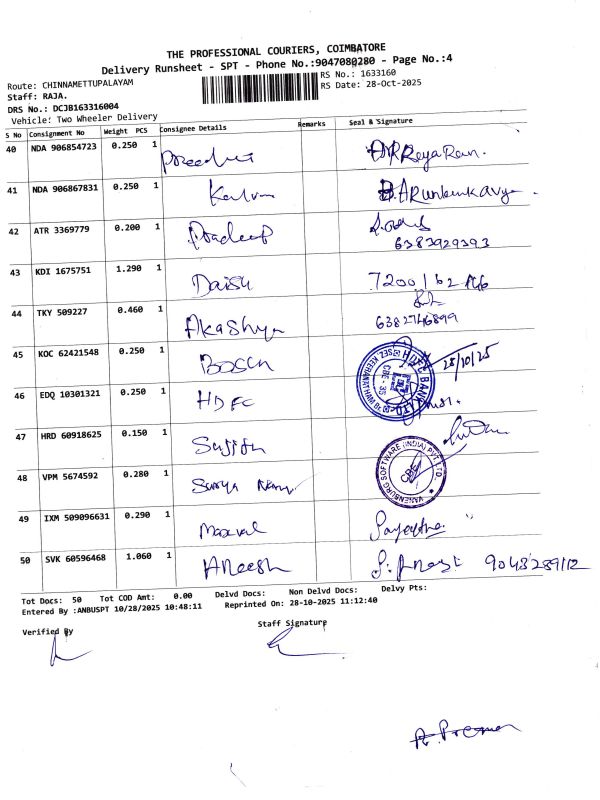 THE PROFESSIONAL COURIERS, COIMBATORE
Delivery Runsheet - SPT - Phone No.:9047080280 - Page No.:4
Route: CHINNAMETTUPALAYAM
RS No.: 1633160
Staff: RAJA.
RS Date: 28-Oct-2025
DRS No.: DCJB163316004
Vehicle: Two Wheeler Delivery
S No Consignment No Weight PCS Consignee Details Remarks Seal & Signature
40 NDA 906854723 0.250 1
41 NDA 906867831 0.250 1
42 ATR 3369779 0.200 1 Pradeep
6383929393
43 KDI 1675751 1.290 1 Daisy
44 TKY 509227 0.460 1 Akashya
45 KOC 62421548 0.250 1 BOSCH 28/10/25
46 EDQ 10301321 0.250 1 HDFC HDFC BANK LTD CBE - 35
47 HRD 60918625 0.150 1
48 VPM 5674592 0.280 1 Surya VANENBURG SOFTWARE (INDIA) PVT LTD. CBE
49 IXM 509096631 0.290 1
50 SVK 60596468 1.060 1 ANeesh
Tot Docs: 50 Tot COD Amt: 0.00 Delvd Docs: Non Delvd Docs: Delvy Pts:
Entered By :ANBUSPT 10/28/2025 10:48:11 Reprinted On: 28-10-2025 11:12:40
Verified By Staff Signature